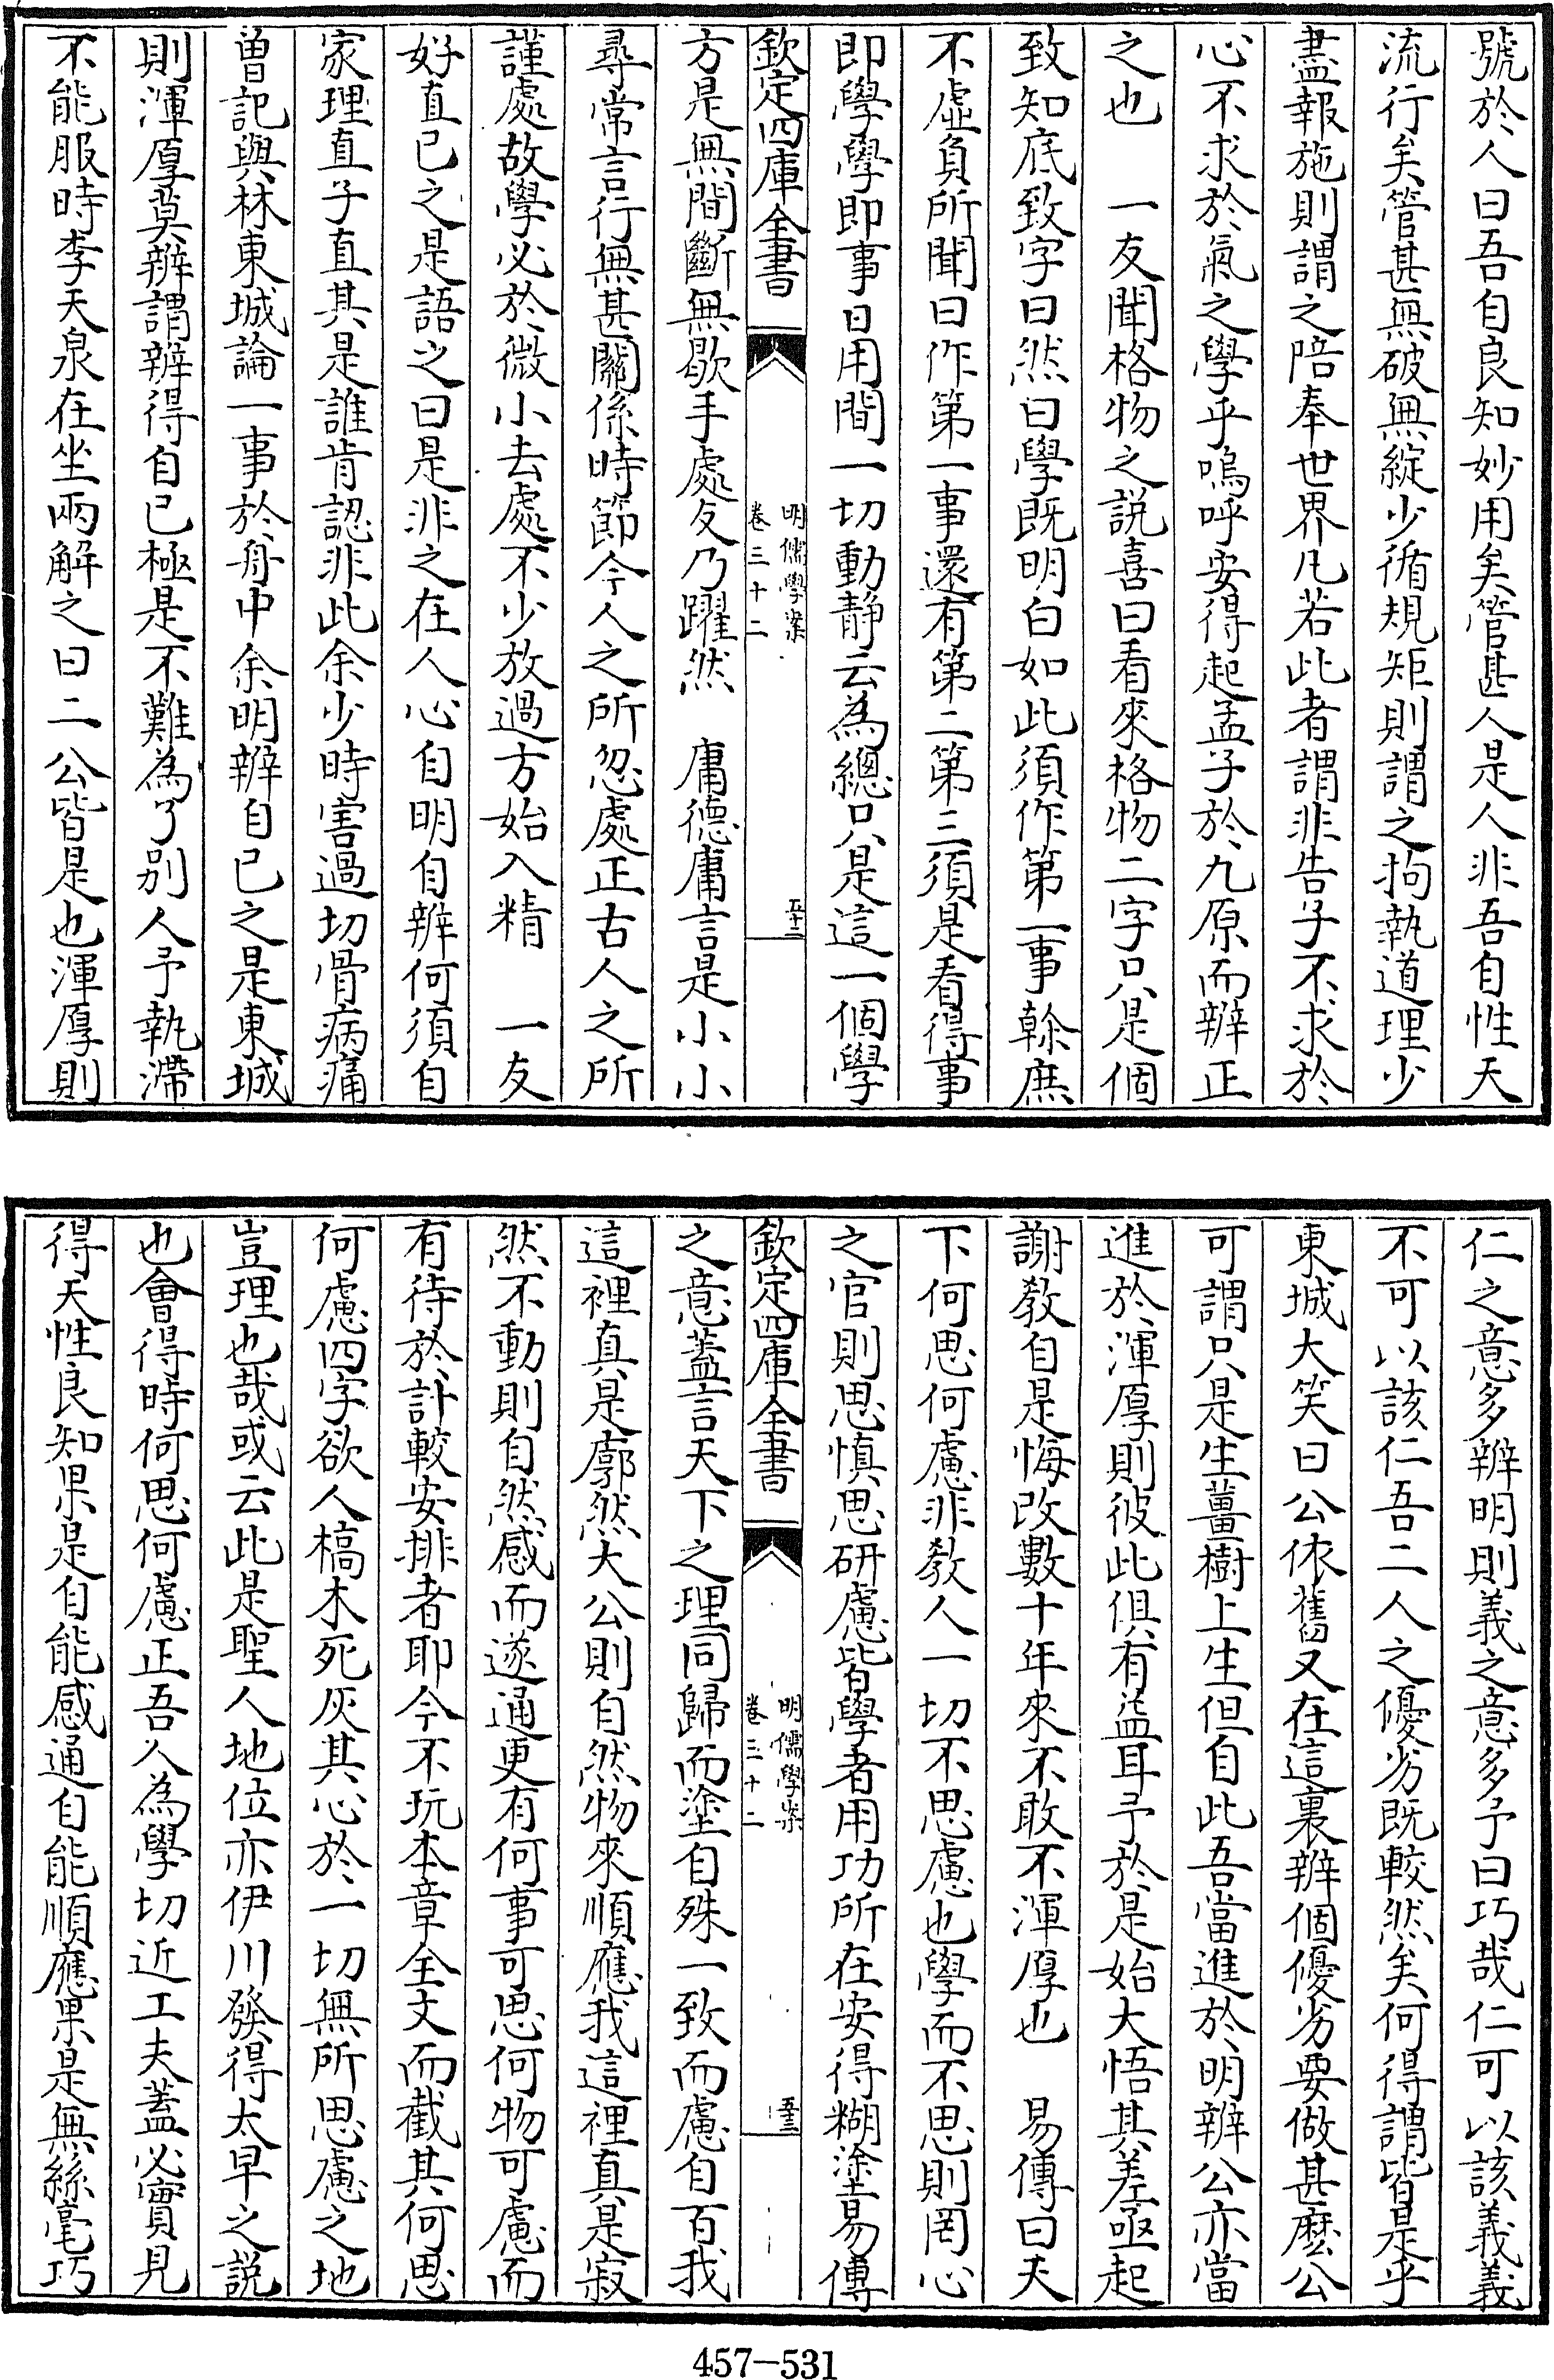 號於人曰吾自良知妙用矣管甚人是人非吾自性天
流行矣管甚無破無綻少循規矩則謂之拘執道理少
盡報施則謂之陪奉世界凡若此者謂非告子不求於
心不求於氣之學乎嗚呼安得起孟子於九原而辨正
之也　一友聞格物之説喜曰看來格物二字只是個
致知底致字曰然曰學既明白如此須作第一事幹庶
不虛負所聞曰作第一事還有第二第三須是看得事
即學學即事日用間一切動静云為總只是這一個學
欽定四庫全書
明儒學案
卷三十二
五十二
方是無間斷無歇手處友乃躍然　庸德庸言是小小
尋常言行無甚關係時節今人之所忽處正古人之所
謹處故學必於微小去處不少放過方始入精　一友
好直已之是語之曰是非之在人心自明自辨何須自
家理直子直其是誰肯認非此余少時害過切骨病痛
曽記與林東城論一事於舟中余明辨自已之是東城
則渾厚莫辨謂辨得自已極是不難為了別人予執滯
不能服時李天泉在坐兩解之曰二公皆是也渾厚則
仁之意多辨明則義之意多予曰巧哉仁可以該義義
不可以該仁吾二人之優劣既較然矣何得謂皆是乎
東城大笑曰公依舊又在這裏辨個優劣要做甚麽公
可謂只是生薑樹上生但自此吾當進於明辨公亦當
進於渾厚則彼此俱有益耳予於是始大悟其差亟起
謝教自是悔改數十年來不敢不渾厚也　易傳曰天
下何思何慮非教人一切不思慮也學而不思則罔心
之官則思慎思研慮皆學者用功所在安得糊塗易傳
欽定四庫全書
明儒學案
卷三十二
五十三
之意蓋言天下之理同歸而塗自殊一致而慮自百我
這裡真是廓然大公則自然物來順應我這裡真是寂
然不動則自然感而遂通更有何事可思何物可慮而
有待於計較安排者耶今不玩本章全文而截其何思
何慮四字欲人槁木死灰其心於一切無所思慮之地
豈理也哉或云此是聖人地位亦伊川發得太早之説
也會得時何思何慮正吾人為學切近工夫蓋必實見
得天性良知果是自能感通自能順應果是無絲毫巧
457-531